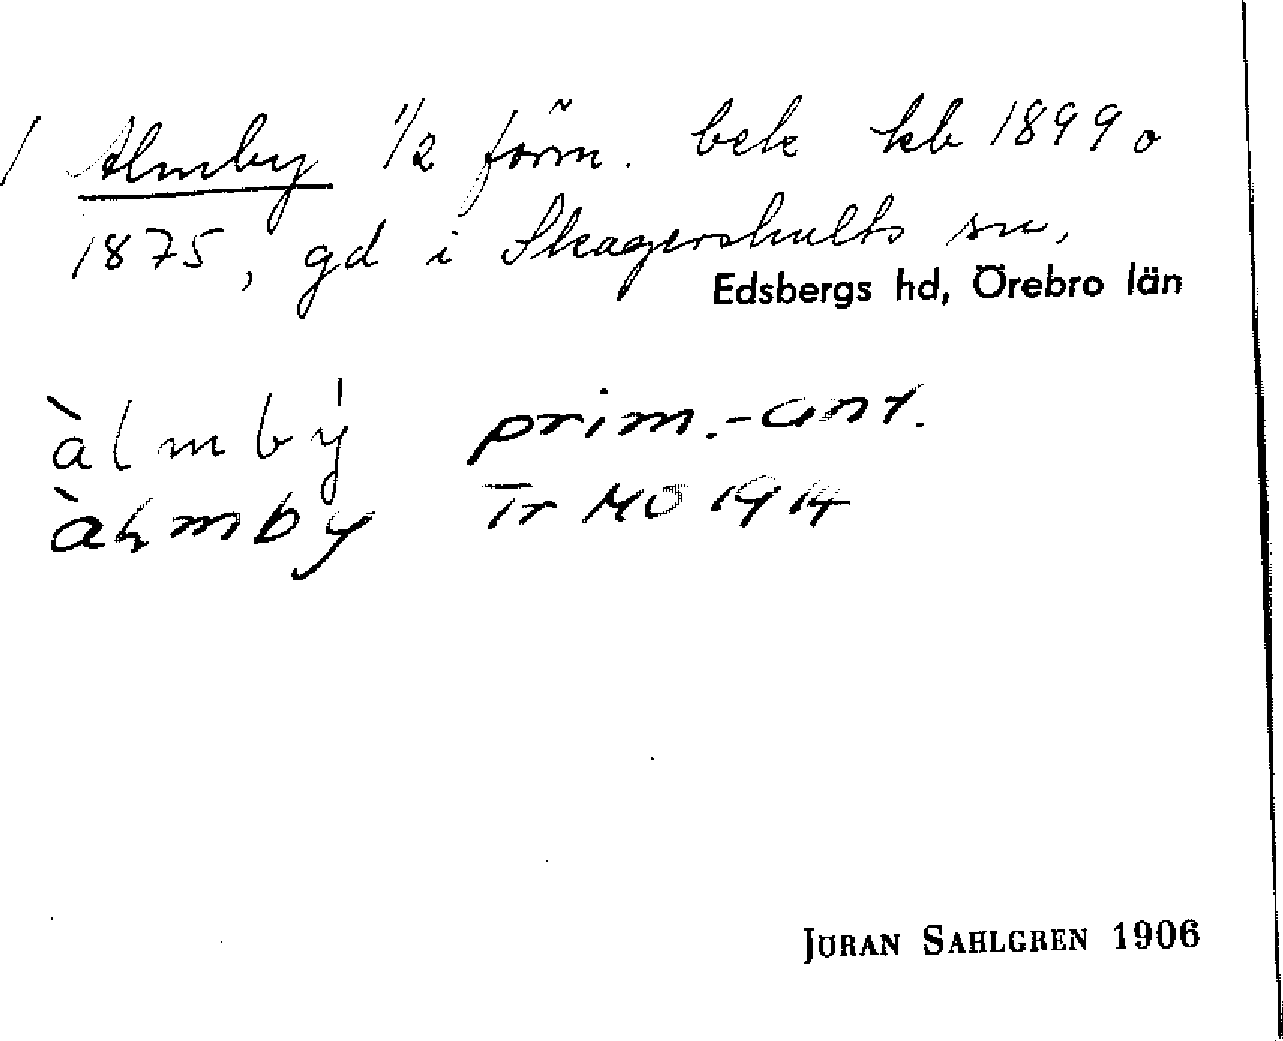 / Almby 1/2 förm. bek kb 1899 o
1875, gd i Skagershults sn,
Edsbergs hd, Örebro län
àlmbý prim.-ant.
àɫmby Tr MÖ 1914
JÖRAN SAHLGREN 1906